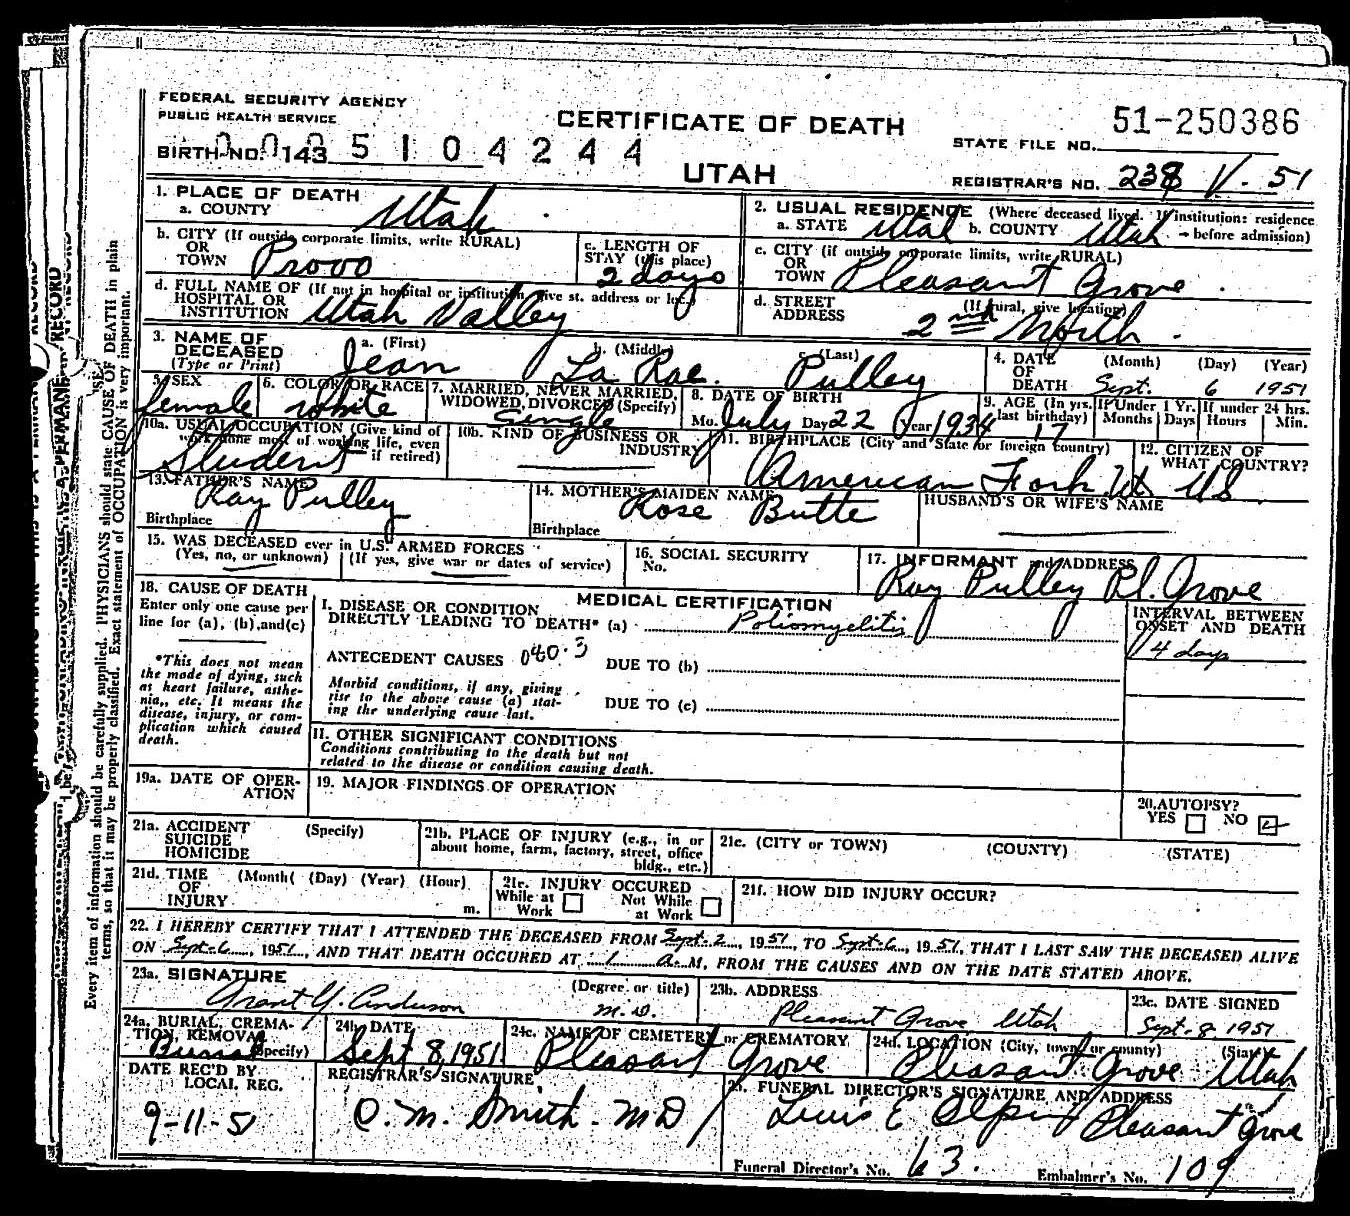 FEDERAL SECURITY AGENCY
PUBLIC HEALTH SERVICE
CERTIFICATE OF DEATH
UTAH
STATE FILE NO. 51-250386
BIRTH NO. 143 5104244
REGISTRAR'S NO. 51
1. PLACE OF DEATH
a. COUNTY Utah
2. USUAL RESIDENCE (Where deceased lived. If institution: residence before admission)
a. STATE Utah b. COUNTY Utah
b. CITY (If outside corporate limits, write RURAL)
OR
TOWN Provo
c. LENGTH OF
STAY (this place)
2 days
c. CITY (if outside corporate limits, write RURAL)
OR
TOWN Pleasant Grove
d. FULL NAME OF (If not in hospital or institution, give st. address or loc.)
HOSPITAL OR
INSTITUTION Utah Valley
d. STREET (If rural, give location)
ADDRESS 2nd North
3. NAME OF
DECEASED
(Type or Print)
a. (First) Jean
b. (Middle) La Rae
c. (Last) Pulley
4. DATE
OF
DEATH
(Month) (Day) (Year)
Sept. 6 1951
5. SEX
female
6. COLOR OR RACE
white
7. MARRIED, NEVER MARRIED,
WIDOWED, DIVORCED (Specify)
Single
8. DATE OF BIRTH
Mo. July Day 22 Year 1934
9. AGE (In yrs. last birthday) 17
If Under 1 Yr. Months Days
If under 24 hrs. Hours Min.
10a. USUAL OCCUPATION (Give kind of
work done most of working life, even
if retired)
Student
10b. KIND OF BUSINESS OR
INDUSTRY
11. BIRTHPLACE (City and State for foreign country)
American Fork Ut
12. CITIZEN OF
WHAT COUNTRY?
US
13. FATHER'S NAME
Ray Pulley
Birthplace
14. MOTHER'S MAIDEN NAME
Rose Butte
Birthplace
HUSBAND'S OR WIFE'S NAME
15. WAS DECEASED ever in U.S. ARMED FORCES
(Yes, no, or unknown) (If yes, give war or dates of service)
16. SOCIAL SECURITY
No.
17. INFORMANT and ADDRESS
Ray Pulley Pl. Grove
18. CAUSE OF DEATH
Enter only one cause per
line for (a), (b), and (c)
*This does not mean
the mode of dying, such
as heart failure, asthe-
nia,, etc. It means the
disease, injury, or com-
plication which caused
death.
MEDICAL CERTIFICATION
I. DISEASE OR CONDITION
DIRECTLY LEADING TO DEATH* (a) Poliomyelitis
INTERVAL BETWEEN
ONSET AND DEATH
4 days
ANTECEDENT CAUSES 040.3
DUE TO (b)
Morbid conditions, if any, giving
rise to the above cause (a) stat-
ing the underlying cause last.
DUE TO (c)
II. OTHER SIGNIFICANT CONDITIONS
Conditions contributing to the death but not
related to the disease or condition causing death.
19a. DATE OF OPER-
ATION
19. MAJOR FINDINGS OF OPERATION
20. AUTOPSY?
YES NO
21a. ACCIDENT (Specify)
SUICIDE
HOMICIDE
21b. PLACE OF INJURY (e.g., in or
about home, farm, factory, street, office
bldg., etc.)
21c. (CITY or TOWN) (COUNTY) (STATE)
21d. TIME (Month( (Day) (Year) (Hour)
OF
INJURY m.
21e. INJURY OCCURED
While at Work Not While at Work
21f. HOW DID INJURY OCCUR?
22. I HEREBY CERTIFY THAT I ATTENDED THE DECEASED FROM Sept. 2, 1951, TO Sept. 6, 1951, THAT I LAST SAW THE DECEASED ALIVE
ON Sept. 6, 1951, AND THAT DEATH OCCURED AT 1 A.M, FROM THE CAUSES AND ON THE DATE STATED ABOVE.
23a. SIGNATURE (Degree or title)
Grant Y. Anderson M.D.
23b. ADDRESS
Pleasant Grove Utah
23c. DATE SIGNED
Sept. 8, 1951
24a. BURIAL, CREMA-
TION, REMOVAL
(Specify)
Burial
24b. DATE
Sept 8, 1951
24c. NAME OF CEMETERY or CREMATORY
Pleasant Grove
24d. LOCATION (City, town, or county) (State)
Pleasant Grove Utah
DATE REC'D BY
LOCAL REG.
9-11-51
REGISTRAR'S SIGNATURE
O. M. Smith. MD
25. FUNERAL DIRECTOR'S SIGNATURE AND ADDRESS
Lewis E Olpin Pleasant Grove
Funeral Director's No. 63.
Embalmer's No. 109
Every item of information should be carefully supplied. PHYSICIANS should state CAUSE OF DEATH in plain
terms, so that it may be properly classified. Exact statement of OCCUPATION is very important.